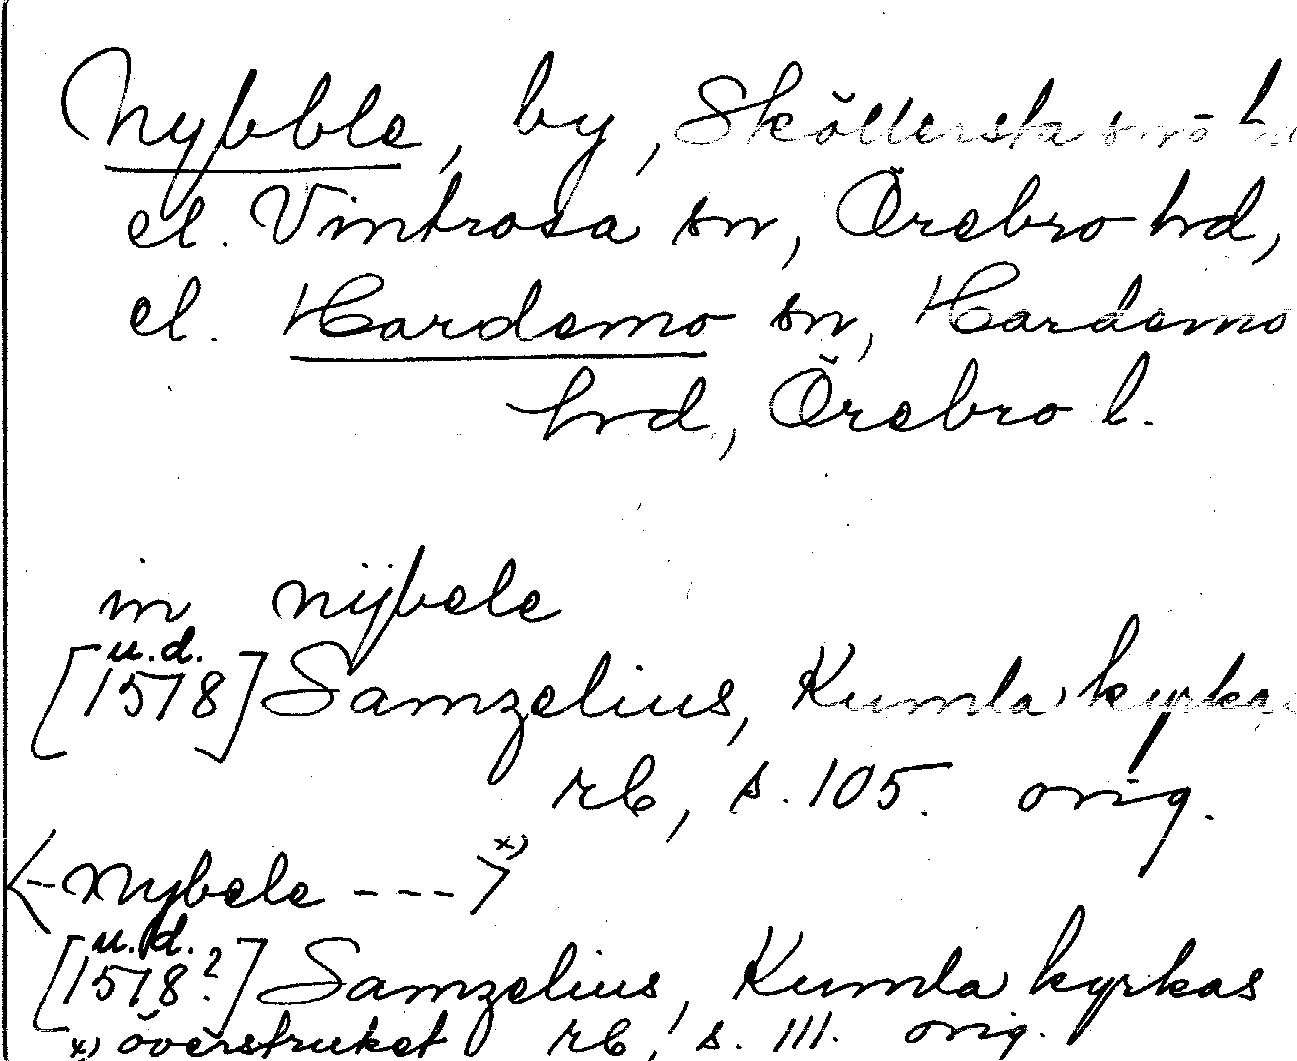 Nybble, by, Sköllersta sn o h
el. Vintrosa sn, Örebro hd,
el. Hardemo sn, Hardemo
hd, Örebro l.
in nÿbele
u.d.
[1578] Samzelius, Kumla kyrkas
rb, s. 105. orig.
<- Nybele - - - > x)
u.d.
[1578?] Samzelius, Kumla kyrkas
x) överstruket rb, s. 111. orig.